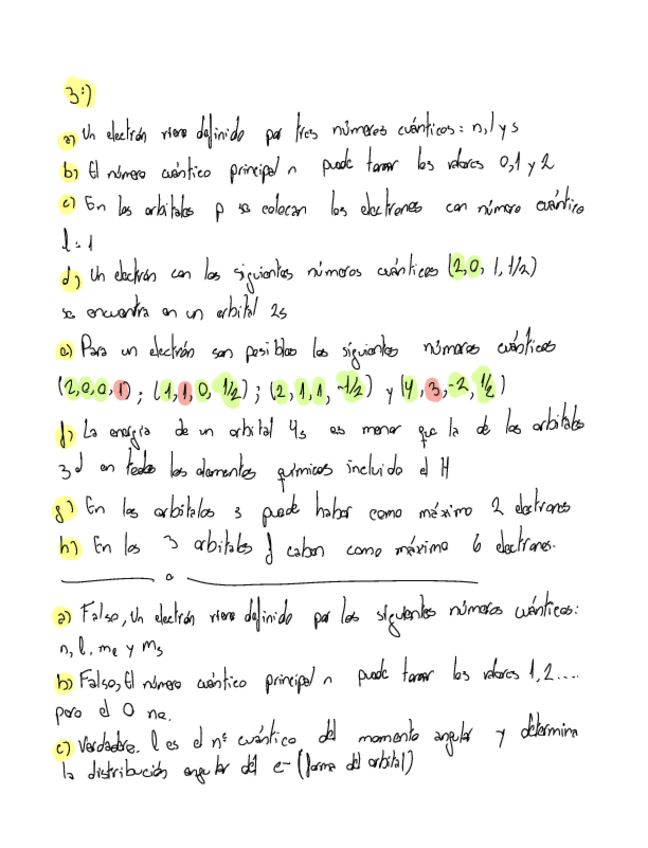 3:)
a) Un electrón viene definido por tres números cuánticos: n, l y s
b) El número cuántico principal n puede tomar los valores 0, 1 y 2
c) En los orbitales p se colocan los electrones con número cuántico
l = 1
d) Un electrón con los siguientes números cuánticos (2, 0, 1, 1/2)
se encuentra en un orbital 2s
e) Para un electrón son posibles los siguientes números cuánticos
(2,0,0,1) ; (1,1,0,1/2) ; (2,1,1,-1/2) y (4,3,-2,1/2)
f) La energía de un orbital 4s es menor que la de los orbitales
3d en todos los elementos químicos incluido el H
g) En los orbitales s puede haber como máximo 2 electrones
h) En los 3 orbitales f caben como máximo 6 electrones.
a) Falso, Un electrón viene definido por los siguientes números cuánticos:
n, l, me y ms
b) Falso, El número cuántico principal n puede tomar los valores 1, 2....
pero el 0 no.
c) Verdadero. l es el nº cuántico del momento angular y determina
la distribución angular del e- (forma del orbital)